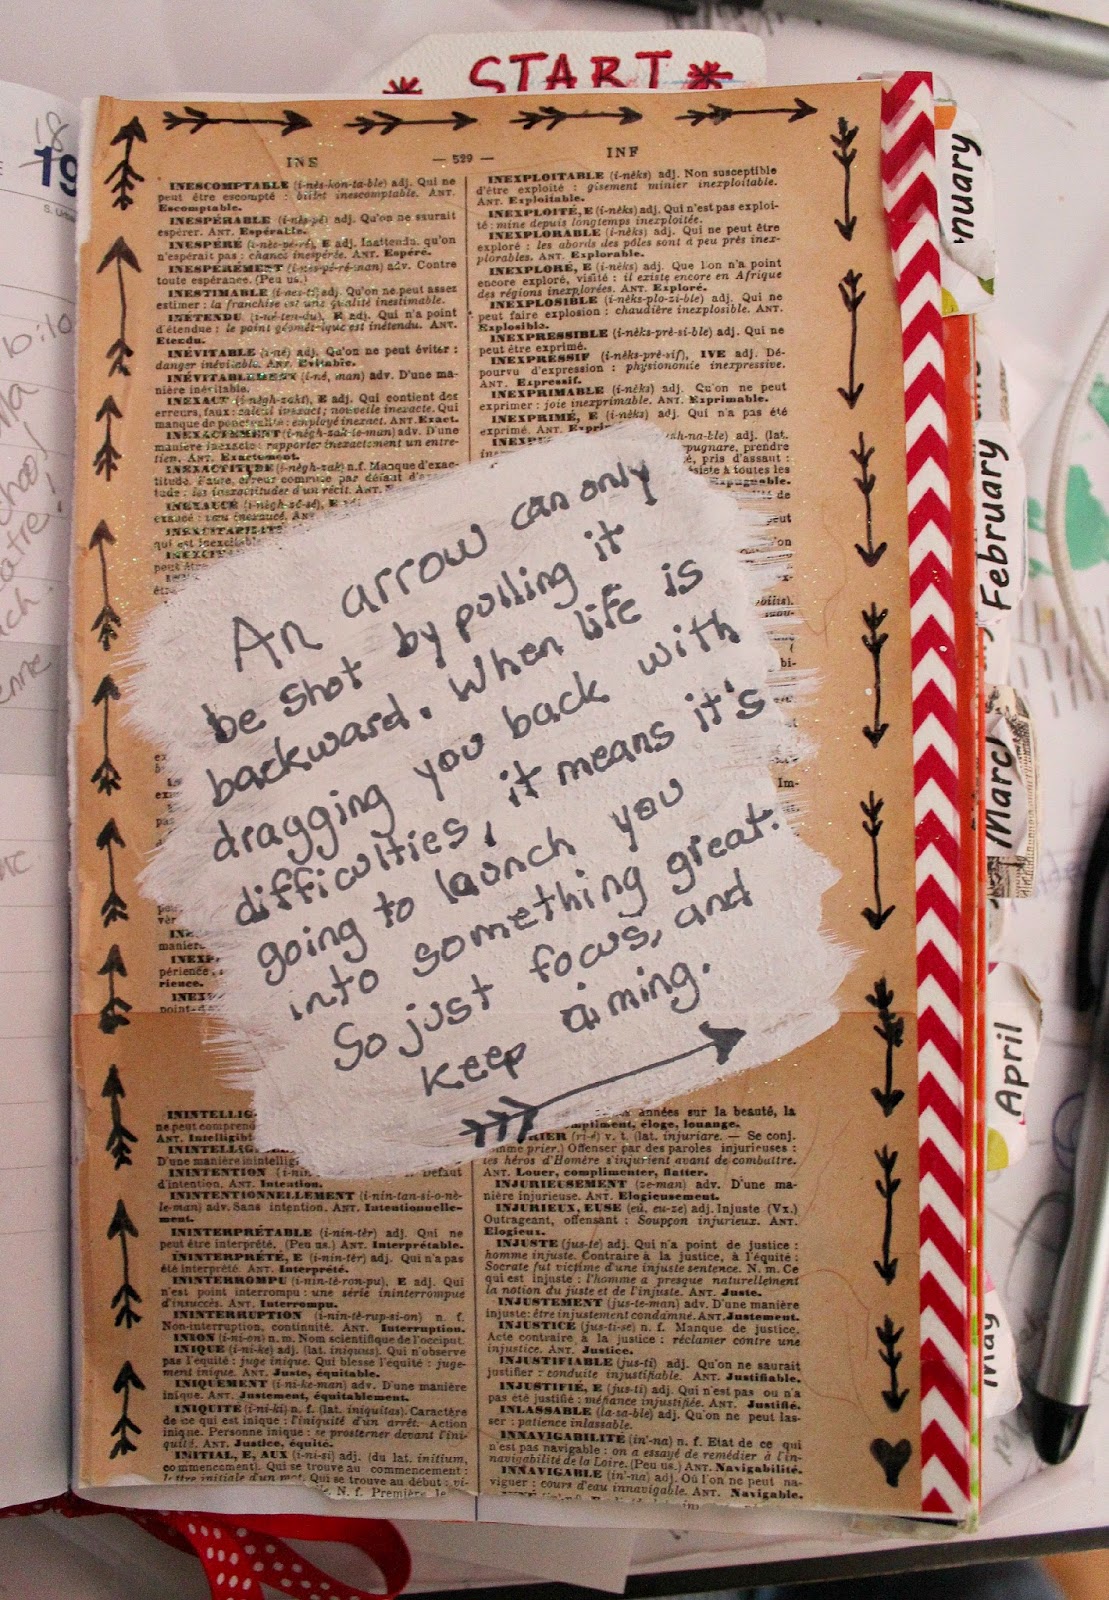 * START *
18
19
INS — 529 — INF
INESCOMPTABLE (i-nès-kon-ta-ble) adj. Qui ne
peut être escompté : billet inescomptable. ANT.
Escomptable.
INESPÉRABLE (i-nès-pé) adj. Qu'on ne saurait
espérer. ANT. Espérable.
INESPÉRÉ (i-nès-pé-ré), E adj. Inattendu, qu'on
n'espérait pas : chance inespérée. ANT. Espéré.
INESPÉRÉMENT (i-nès-pé-ré-man) adv. Contre
toute espérance. (Peu us.)
INESTIMABLE (i-nes-ti) adj. Qu'on ne peut assez
estimer : la franchise est une qualité inestimable.
INÉTENDU (i-né-ten-du), E adj. Qui n'a point
d'étendue : le point géométrique est inétendu. ANT.
Etendu.
INÉVITABLE (i-né) adj. Qu'on ne peut éviter :
danger inévitable. ANT. Evitable.
INÉVITABLEMENT (i-né, man) adv. D'une ma-
nière inévitable.
INEXACT (i-nègh-zakt), E adj. Qui contient des
erreurs, faux : calcul inexact ; nouvelle inexacte. Qui
manque de ponctualité : employé inexact. ANT. Exact.
INEXACTEMENT (i-nègh-zak-te-man) adv. D'une
manière inexacte : rapporter inexactement un entre-
tien. ANT. Exactement.
INEXACTITUDE (i-nègh-zak) n.f. Manque d'exac-
titude. Faute, erreur commise par défaut d'
tude : les inexactitudes d'un récit. ANT.
INEXAUCÉ
INEXPLOITABLE (i-nèks) adj. Non susceptible
d'être exploité : gisement minier inexploitable.
ANT. Exploitable.
INEXPLOITÉ, E (i-nèks) adj. Qui n'est pas exploi-
té : mine depuis longtemps inexploitée.
INEXPLORABLE (i-nèks) adj. Qui ne peut être
exploré : les abords des pôles sont à peu près inex-
plorables. ANT. Explorable.
INEXPLORÉ, E (i-nèks) adj. Que l'on n'a point
encore exploré, visité : il existe encore en Afrique
des régions inexplorées. ANT. Exploré.
INEXPLOSIBLE (i-nèks-plo-zi-ble) adj. Qui ne
peut faire explosion : chaudière inexplosible. ANT.
Explosible.
INEXPRESSIBLE (i-nèks-prè-si-ble) adj. Qui ne
peut être exprimé.
INEXPRESSIF (i-nèks-prè-sif), IVE adj. Dé-
pourvu d'expression : physionomie inexpressive.
ANT. Expressif.
INEXPRIMABLE (i-nèks) adj. Qu'on ne peut
exprimer : joie inexprimable. ANT. Exprimable.
INEXPRIMÉ, E (i-nèks) adj. Qui n'a pas été
exprimé. ANT.
(lat.
pugnare, prendre
pris d'assaut :
siste à toutes les
Expugnable.
An arrow can only
be shot by pulling it
backward. When life is
dragging you back with
difficulties, it means it's
going to launch you
into something great.
So just focus, and
keep aiming.
ININTELLIG
ne peut comprend
ANT. Intelligib
D'une manière inintellig
ININTENTION (i-nin) Défaut
d'intention. ANT. Intention.
ININTENTIONNELLEMENT (i-nin-tan-si-o-nè-
le-man) adv. Sans intention. ANT. Intentionnelle-
ment.
ININTERPRÉTABLE (i-nin-tèr) adj. Qui ne
peut être interprété. (Peu us.) ANT. Interprétable.
ININTERPRÉTÉ, E (i-nin-tèr) adj. Qui n'a pas
été interprété. ANT. Interprété.
ININTERROMPU (i-nin-tè-ron-pu), E adj. Qui
n'est point interrompu : une série ininterrompue
d'insuccès. ANT. Interrompu.
ININTERRUPTION (i-nin-tè-rup-si-on) n. f.
Non-interruption, continuité. ANT. Interruption.
INION (i-ni-on) n. m. Nom scientifique de l'occiput.
INIQUE (i-ni-ke) adj. (lat. iniquus). Qui n'observe
pas l'équité : juge inique. Qui blesse l'équité : juge-
ment inique. ANT. Juste, équitable.
INIQUEMENT (i-ni-ke-man) adv. D'une manière
inique. ANT. Justement, équitablement.
INIQUITÉ (i-ni-ki) n. f. (lat. iniquitas). Caractère
de ce qui est inique : l'iniquité d'un arrêt. Action
inique. Personne inique : se prosterner devant l'ini-
quité. ANT. Justice, équité.
INITIAL, E, AUX (i-ni-si) adj. (du lat. initium,
commencement). Qui se trouve au commencement :
lettre initiale d'un mot. Qui se trouve au début : vi-
N. f. Première le
années sur la beauté, la
compliment, éloge, louange.
(ri-é) v. t. (lat. injuriare. — Se conj.
comme prier.) Offenser par des paroles injurieuses :
les héros d'Homère s'injurient avant de combattre.
ANT. Louer, complimenter, flatter.
INJURIEUSEMENT (ze-man) adv. D'une ma-
nière injurieuse. ANT. Elogieusement.
INJURIEUX, EUSE (eû, eu-ze) adj. Injuste (Vx.)
Outrageant, offensant : Soupçon injurieux. ANT.
Elogieux.
INJUSTE (jus-te) adj. Qui n'a point de justice :
homme injuste. Contraire à la justice, à l'équité :
Socrate fut victime d'une injuste sentence. N. m. Ce
qui est injuste : l'homme a presque naturellement
la notion du juste et de l'injuste. ANT. Juste.
INJUSTEMENT (jus-te-man) adv. D'une manière
injuste : être injustement condamné. ANT. Justement.
INJUSTICE (jus-ti-se) n. f. Manque de justice.
Acte contraire à la justice : réclamer contre une
injustice. ANT. Justice.
INJUSTIFIABLE (jus-ti) adj. Qu'on ne saurait
justifier : conduite injustifiable. ANT. Justifiable.
INJUSTIFIÉ, E (jus-ti) adj. Qui n'est pas ou n'a
pas été justifié : méfiance injustifiée. ANT. Justifié.
INLASSABLE (la-sa-ble) adj. Qu'on ne peut las-
ser : patience inlassable.
INNAVIGABILITÉ (in'-na) n. f. Etat de ce qui
n'est pas navigable : on a essayé de remédier à l'in-
navigabilité de la Loire. (Peu us.) ANT. Navigabilité.
INNAVIGABLE (in'-na) adj. Où l'on ne peut na-
viguer : cours d'eau innavigable. ANT. Navigable.
nuary
February
March
April
May